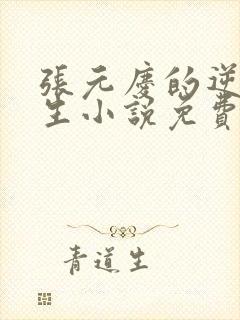 張元慶的逆
生小説免費
青道生